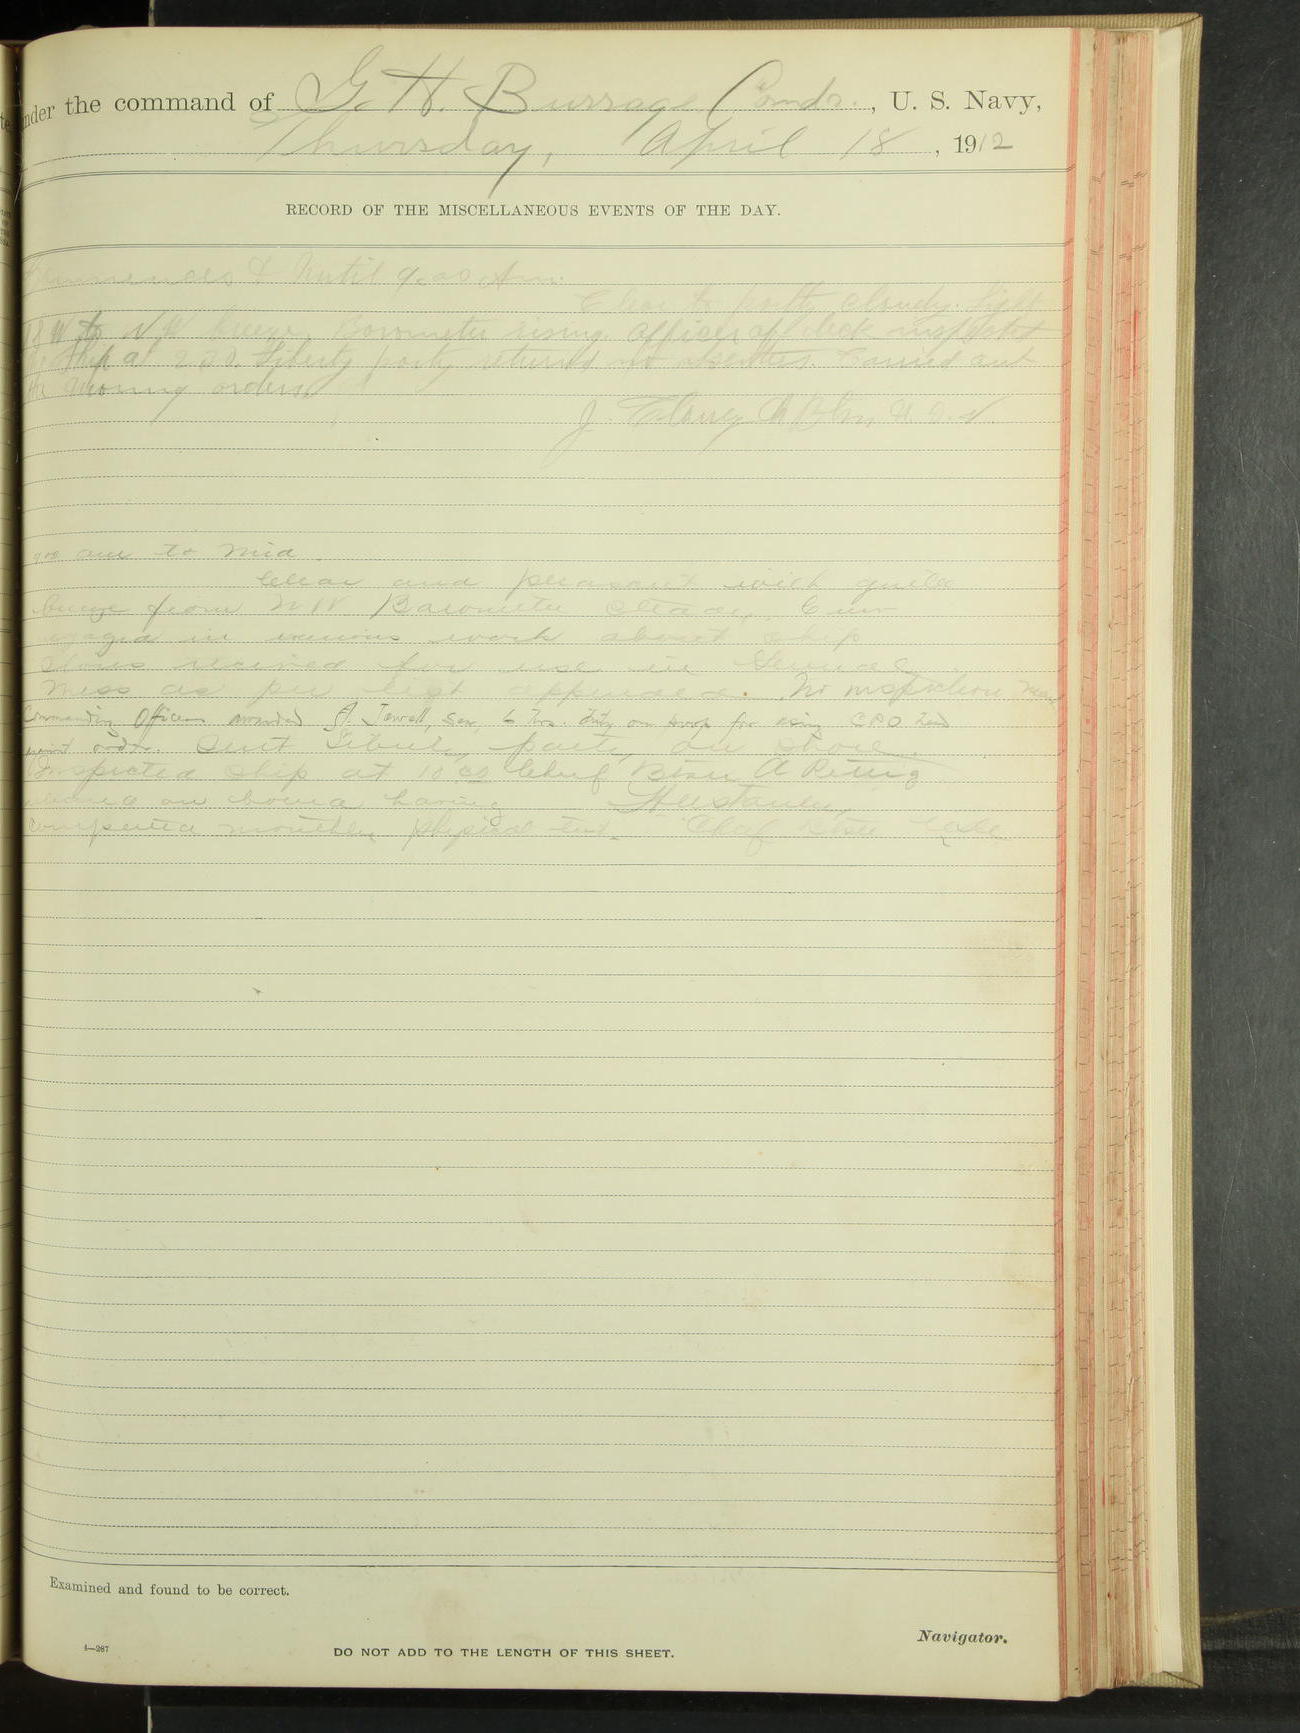 nder the command of G. H. Burrage Comdr., U. S. Navy,
Thursday, April 18, 1912
RECORD OF THE MISCELLANEOUS EVENTS OF THE DAY.
Commences & until 9.00 Am.
Clear to partly cloudy. Light
W to N W breeze. Barometer rising. Officer of deck inspected
Ship at 2.00. Liberty party returned no absentees. Carried out
morning orders
J. U. S. N.
9 00 am to Mid
Clear and pleasant with gentle
breeze from N W Barometer steady. Crew
engaged in various work about ship
Stores received for use in General
Mess as per list appended. No inspection
Commanding Officer awarded J. Jowell, Sea, 6 hrs. duty on poop for using C.P.O. head
Sent Liberty party on shore.
Inspected ship at 10 00 Chief Btsn A Rettig
on board having
completed monthly physical test. Chief
Examined and found to be correct.
Navigator.
1—267
DO NOT ADD TO THE LENGTH OF THIS SHEET.